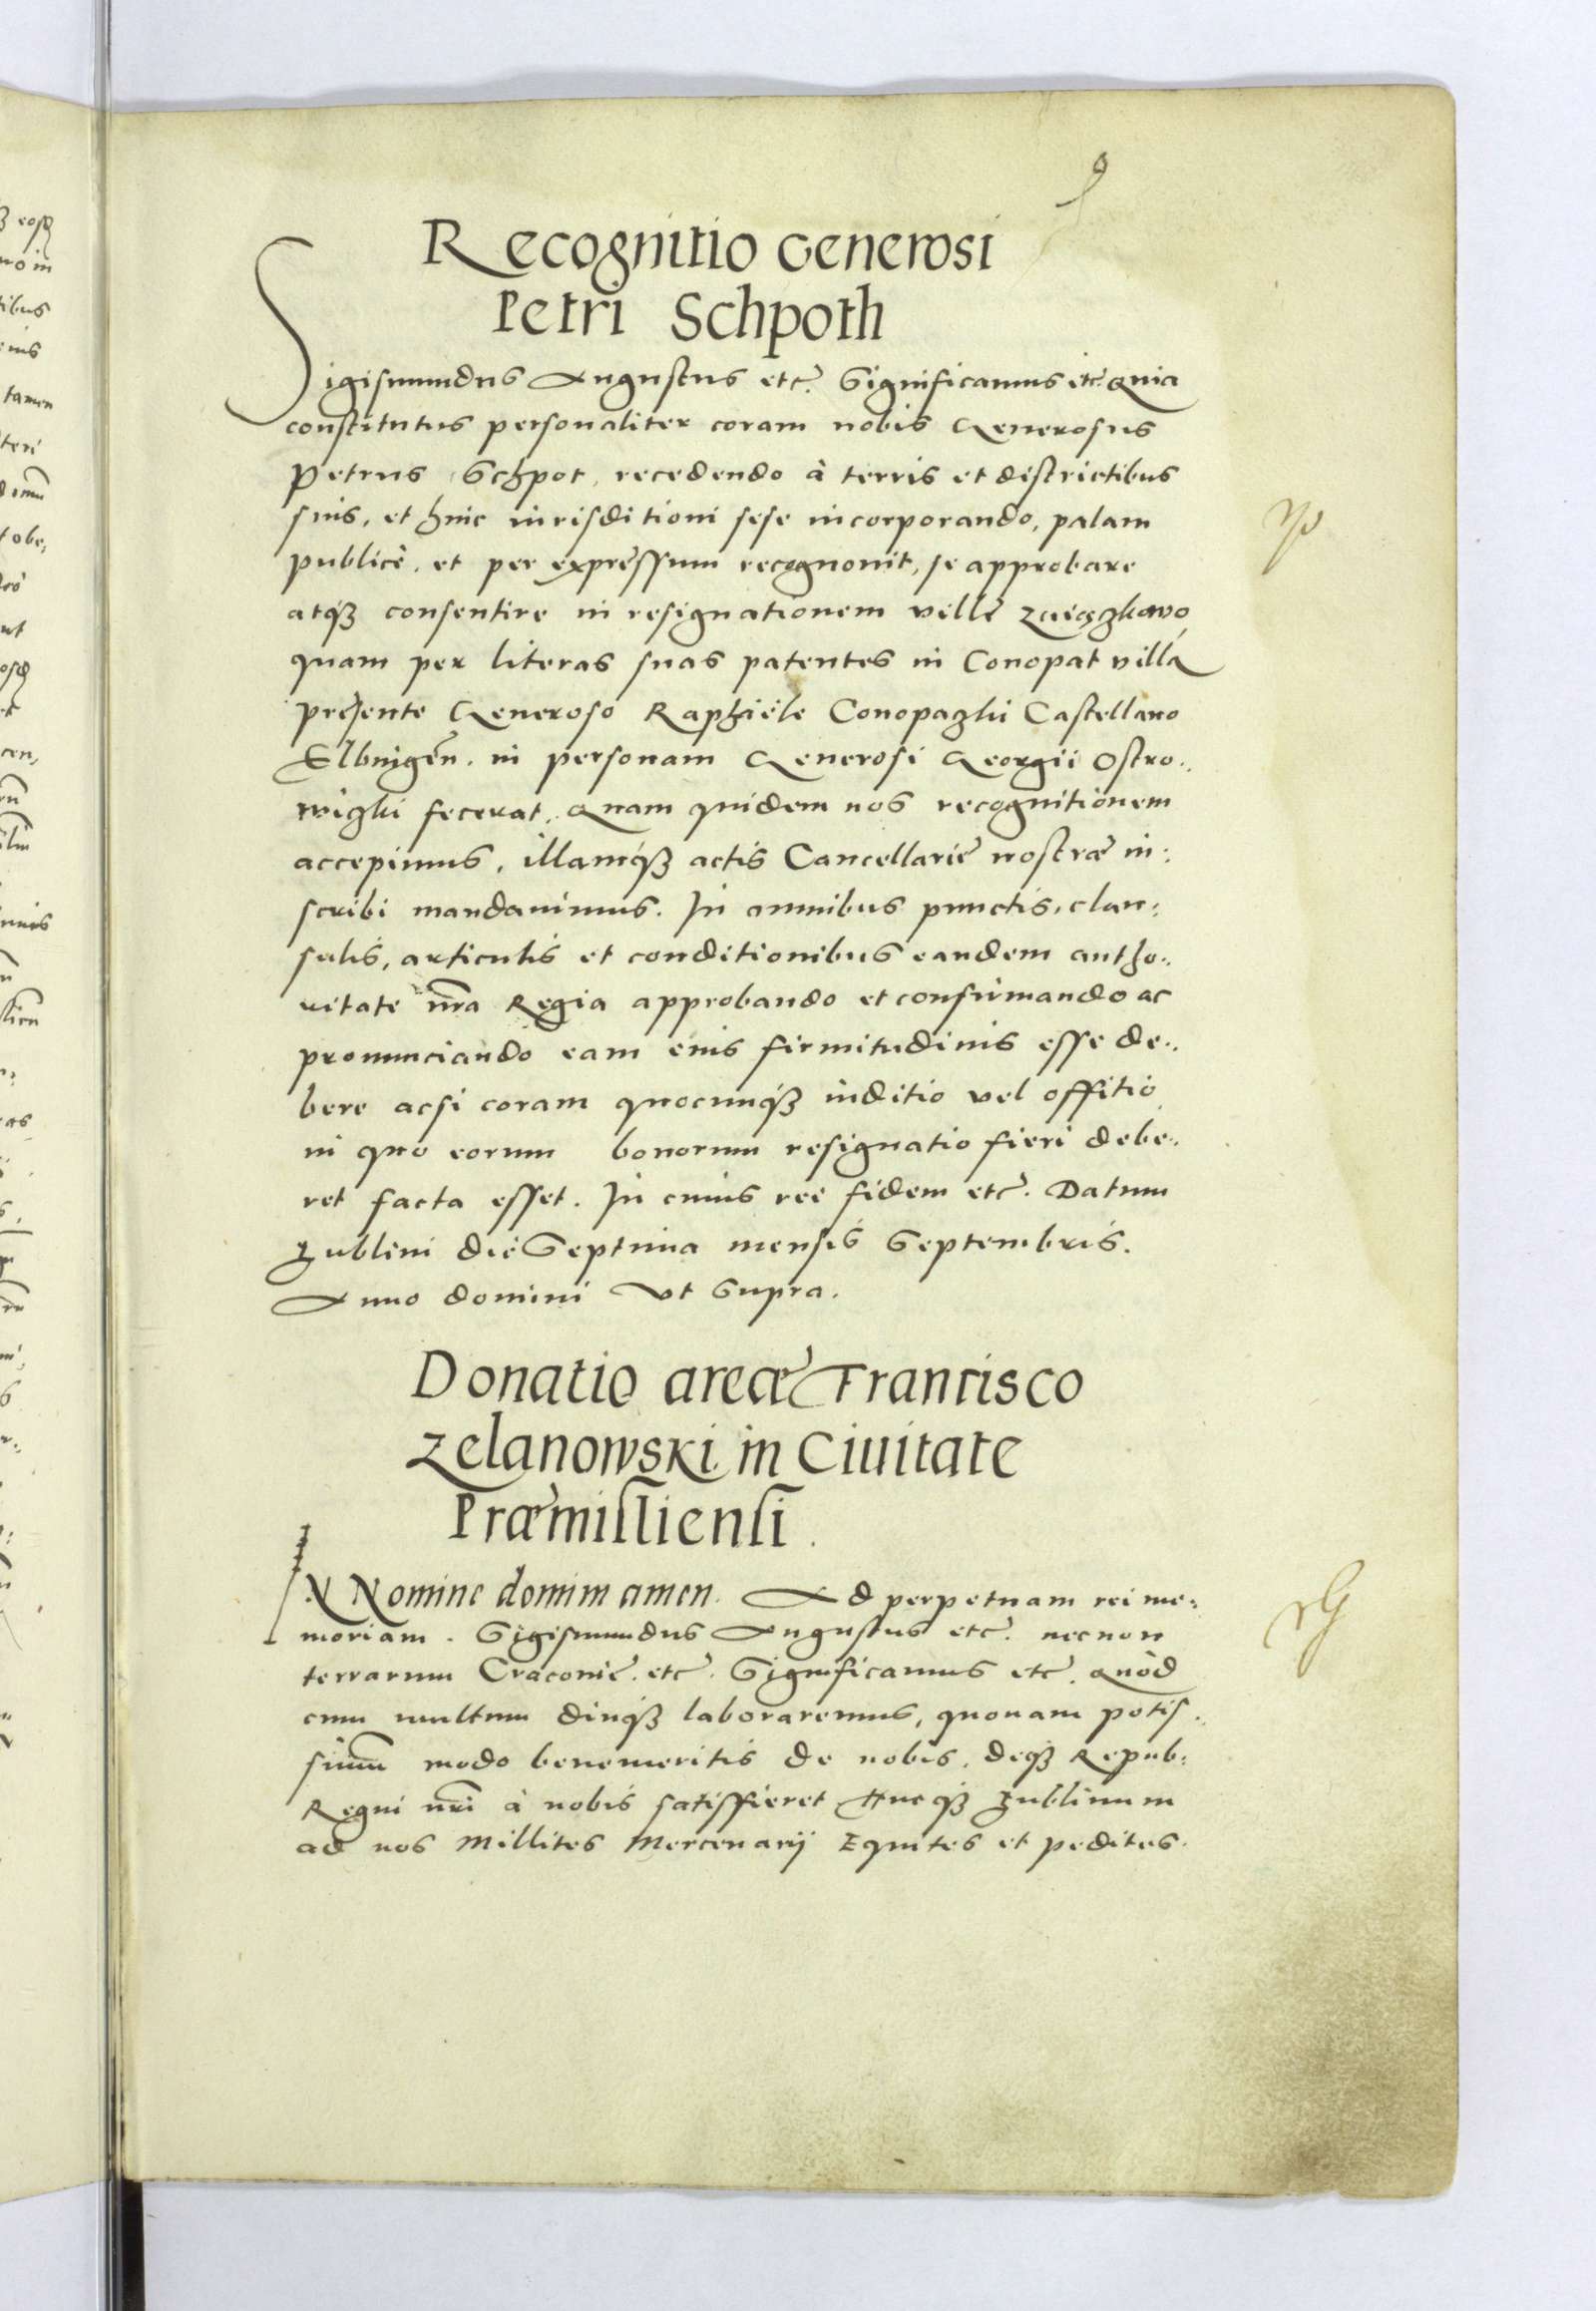 9
Recognitio Generosi
Petri Schpoth
Sigismundus Augustus etc. Significamus etc. Quia
constitutus personaliter coram nobis Generosus
Petrus Schpot, recedendo à terris et districtibus
suis, et huic iurisditioni sese incorporando, palam
publicè, et per expressum recognouit, se approbare
atqꝫ consentire in resignationem villę Zaiączkowo
quam per literas suas patentes in Conopat villa
presente Generoso Raphaële Conopaczki Castellano
Elbingeñ. in personam Generosi Georgii Ostro:
wiczki fecerat. Quam quidem nos recognitionem
accepimus, illamqꝫ actis Cancellarię nostræ in:
scribi mandauimus. In omnibus punctis, clau:
sulis, articulis et conditionibus eandem autho:
ritate nr̃a Regia approbando et confirmando ac
pronunciando eam eius firmitudinis esse de:
bere acsi coram quocunqꝫ iuditio vel offitio
in quo eorum bonorum resignatio fieri debe:
ret facta esset. In cuius rei fidem etc. Datum
Lublini die Septima mensis Septembris.
Anno domini Vt Supra.
Donatio areæ Francisco
Zelanowski in Ciuitate
Præmisliensi.
IN Nomine domini amen. Ad perpetuam rei me:
moriam. Sigismundus Augustus etc. necnon
terrarum Cracouię. etc. Significamus etc. Quòd
cum multum diuqꝫ laboraremus, quonam potis:
simũ modo benemeritis de nobis, deqꝫ Repub:
Regni nr̃i à nobis satisfieret Hucqꝫ Lublinum
ad nos Millites Mercenarij Equites et pedites.